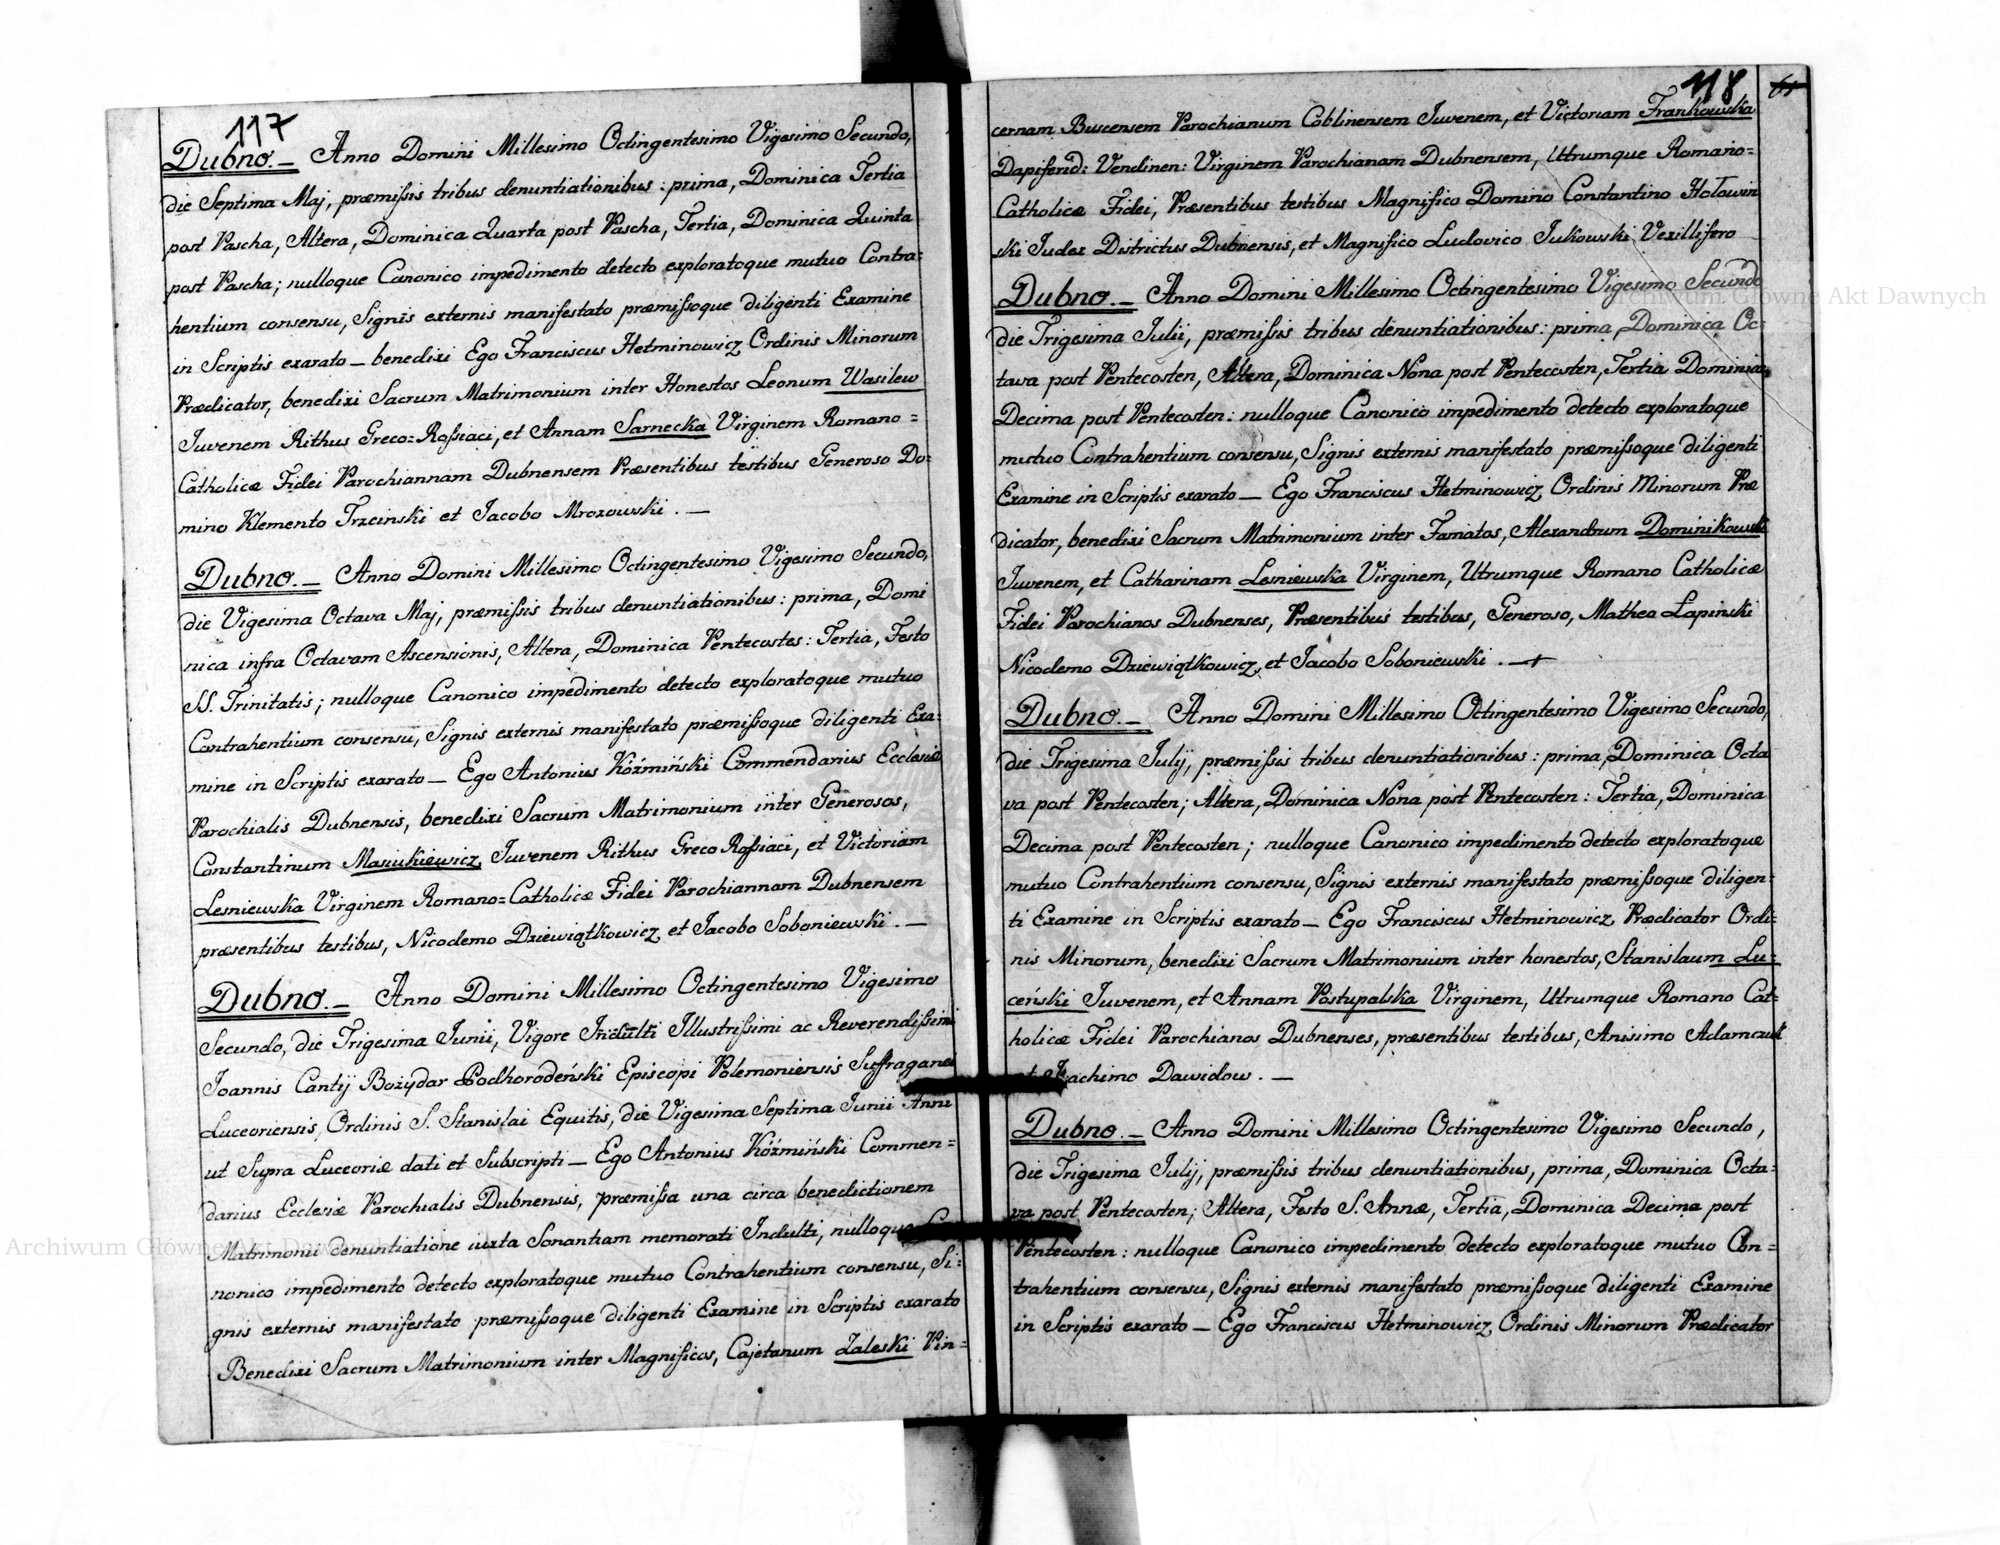 117
Dubno. — Anno Domini Millesimo Octingentesimo Vigesimo Secundo,
die Septima Maj, præmissis tribus denuntiationibus: prima, Dominica Tertia
post Pascha, Altera, Dominica Quarta post Pascha, Tertia, Dominica Quinta
post Pascha; nulloque Canonico impedimento detecto exploratoque mutuo Contra=
hentium consensu, Signis externis manifestato præmissoque diligenti Examine
in Scriptis exarato — benedixi Ego Franciscus Hetminowicz Ordinis Minorum
Prædicator, benedixi Sacrum Matrimonium inter Honestos Leonum Wasilew
Iuvenem Rithus Greco=Rossiaci, et Annam Sarnecka Virginem Romano=
Catholicæ Fidei Parochiannam Dubnensem Præsentibus testibus Generoso Do=
mino Klemento Trzcinski et Jacobo Mrozowski. —
Dubno. — Anno Domini Millesimo Octingentesimo Vigesimo Secundo,
die Vigesima Octava Maj, præmissis tribus denuntiationibus: prima, Domi
nica infra Octavam Ascensionis, Altera, Dominica Pentecostes: Tertia, Festo
SS. Trinitatis; nulloque Canonico impedimento detecto exploratoque mutuo
Contrahentium consensu, Signis externis manifestato præmissoque diligenti Exa=
mine in Scriptis exarato — Ego Antonius Kóźmiński Commendarius Ecclesiæ
Parochialis Dubnensis, benedixi Sacrum Matrimonium inter Generosos,
Constantinum Masiukiewicz Iuvenem Rithus Greco Rossiaci, et Victoriam
Lesniewska Virginem Romano=Catholicæ Fidei Parochiannam Dubnensem
præsentibus testibus, Nicodemo Dziewiątkowicz et Jacobo Soboniewski. —
Dubno. — Anno Domini Millesimo Octingentesimo Vigesimo
Secundo, die Trigesima Junii, Vigore Indulti Illustrissimi ac Reverendissimi
Joannis Cantij Bożydar Podhorodeński Episcopi Polemoniensis Suffraganei
Luceoriensis, Ordinis S. Stanislai Equitis, die Vigesima Septima Junii Anni
ut Supra Luceoriæ dati et Subscripti — Ego Antonius Kóźmiński Commen=
darius Ecclesiæ Parochialis Dubnensis, præmissa una circa benedictionem
Matrimonii denuntiatione iuxta Sonantiam memorati Indulti, nulloque
nonico impedimento detecto exploratoque mutuo Contrahentium consensu, Si=
gnis externis manifestato præmissoque diligenti Examine in Scriptis exarato
Benedixi Sacrum Matrimonium inter Magnificos, Cajetanum Zaleski Pin=
118
cernam Buscensem Parochianum Coblinensem Iuvenem, et Victoriam Frankowska
Dapiferid: Vendinen: Virginem Parochianam Dubnensem, Utrumque Romano=
Catholicæ Fidei, Præsentibus testibus Magnifico Domino Constantino Hołowin
ski Judex Districtus Dubnensis, et Magnifico Ludovico Jukowski Vexillifero
Dubno. — Anno Domini Millesimo Octingentesimo Vigesimo Secundo
die Trigesima Iulii, præmissis tribus denuntiationibus: prima, Dominica Oc=
tava post Pentecosten, Altera, Dominica Nona post Pentecosten, Tertia Dominica
Decima post Pentecosten: nulloque Canonico impedimento detecto exploratoque
mutuo Contrahentium consensu, Signis externis manifestato præmissoque diligenti
Examine in Scriptis exarato — Ego Franciscus Hetminowicz Ordinis Minorum Præ
dicator, benedixi Sacrum Matrimonium inter Famatos, Alexandrum Dominikowski
Iuvenem, et Catharinam Lesniewska Virginem, Utrumque Romano Catholicæ
Fidei Parochianos Dubnenses, Præsentibus testibus, Generoso, Matheo Lapinski
Nicodemo Dziewiątkowicz, et Jacobo Soboniewski. —
Dubno. — Anno Domini Millesimo Octingentesimo Vigesimo Secundo,
die Trigesima Julij, præmissis tribus denuntiationibus: prima, Dominica Octa
va post Pentecosten; Altera, Dominica Nona post Pentecosten: Tertia, Dominica
Decima post Pentecosten; nulloque Canonico impedimento detecto exploratoque
mutuo Contrahentium consensu, Signis externis manifestato præmissoque diligen=
ti Examine in Scriptis exarato — Ego Franciscus Hetminowicz Prædicator Ordi=
nis Minorum, benedixi Sacrum Matrimonium inter honestos, Stanislaum Lu=
ceński Iuvenem, et Annam Postupalska Virginem, Utrumque Romano Cat=
holicæ Fidei Parochianos Dubnenses, præsentibus testibus, Anisimo Adamczuk
et Joachimo Dawidow. —
Dubno. — Anno Domini Millesimo Octingentesimo Vigesimo Secundo,
die Trigesima Julij, præmissis tribus denuntiationibus, prima, Dominica Octa=
va post Pentecosten; Altera, Festo S. Annæ, Tertia, Dominica Decima post
Pentecosten: nulloque Canonico impedimento detecto exploratoque mutuo Con=
trahentium consensu, Signis externis manifestato præmissoque diligenti Examine
in Scriptis exarato — Ego Franciscus Hetminowicz Ordinis Minorum Prædicator
Archiwum Główne Akt Dawnych
Archiwum Główne Akt Dawnych